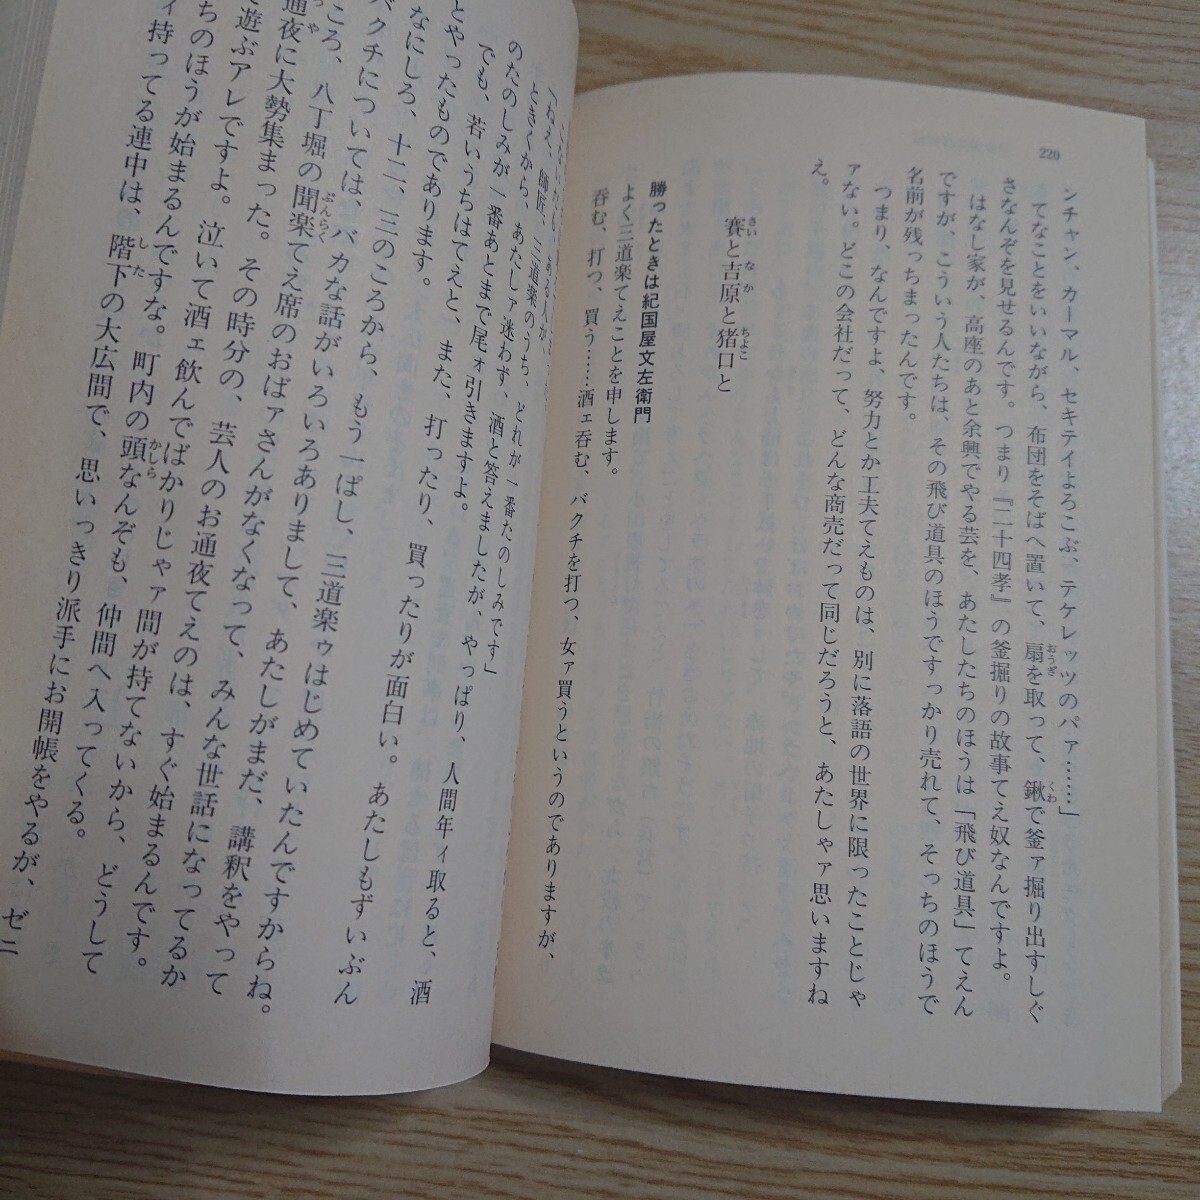 220
ンチャン、カーマル、セキテイよろこぶ、テケレッツのパァ……」
てなことをいいながら、布団をそばへ置いて、扇を取って、鍬で釜ァ掘り出すしぐ
さなんぞを見せるんです。つまり『二十四孝』の釜掘りの故事てえ奴なんですよ。
はなし家が、高座のあと余興でやる芸を、あたしたちのほうは「飛び道具」てえん
ですが、こういう人たちは、その飛び道具のほうですっかり売れて、そっちのほうで
名前が残っちまったんです。
つまり、なんですよ、努力とか工夫てえものは、別に落語の世界に限ったことじゃ
ァない。どこの会社だって、どんな商売だって同じだろうと、あたしゃァ思いますね
え。
賽と吉原と猪口と
勝ったときは紀国屋文左衛門
よく三道楽てえことを申します。
呑む、打つ、買う……酒ェ呑む、バクチを打つ、女ァ買うというのでありますが、
ある人が、
「ねえ、師匠、三道楽のうち、どれが一番たのしみです」
ときくから、あたしァ迷わず、酒と答えましたが、やっぱり、人間年ィ取ると、酒
のたのしみが一番あとまで尾ォ引きますよ。
でも、若いうちはてえと、また、打ったり、買ったりが面白い。あたしもずいぶん
とやったものであります。
なにしろ、十二、三のころから、もう一ぱし、三道楽ゥはじめていたんですからね。
バクチについては、バカな話がいろいろありまして、あたしがまだ、講釈をやって
ころ、八丁堀の聞楽てえ席のおばァさんがなくなって、みんな世話になってるか
通夜に大勢集まった。その時分の、芸人のお通夜てえのは、すぐ始まるんです。
で遊ぶアレですよ。泣いて酒ェ飲んでばかりじゃァ間が持てないから、どうして
ちのほうが始まるんですな。町内の頭なんぞも、仲間へ入ってくる。
ィ持ってる連中は、階下の大広間で、思いっきり派手にお開帳をやるが、ゼニ